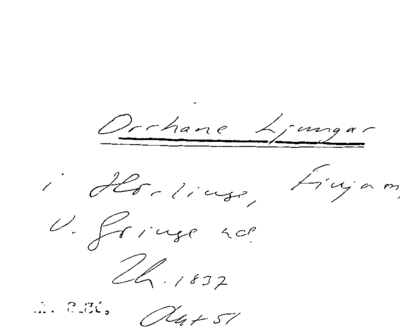 Orrhane Ljungar
i Hörlinge, Finjam,
V. Göinge hd.
Th. 1837